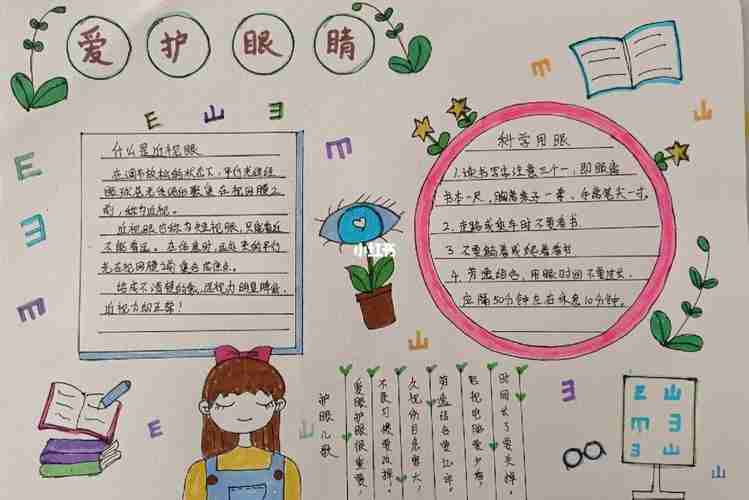 爱护眼睛
E山ヨ
什么是近视眼
在调节放松的状态下,平行光线经
眼球屈光系统后聚焦在视网膜之
前,称为近视。
近视眼也称为短视眼,只能看近
不能看远。在休息时,
光在视网膜之前
近视力却正常!
科学用眼
1.读书写字注意三个一,即眼离
书本一尺,胸离桌子一拳,手离笔尖一寸。
2.走路或乘车时不要看书。
3.不要躺着或趴着看书。
4.劳逸结合,用眼时间不要过长,
应隔50分钟左右休息10分钟。
小红书
护眼儿歌
爱眼护眼很重要,
不良习惯要改掉。
久视伤目危害大,
劳逸结合要记牢。
电视电脑要少看,
时间长了要关掉。